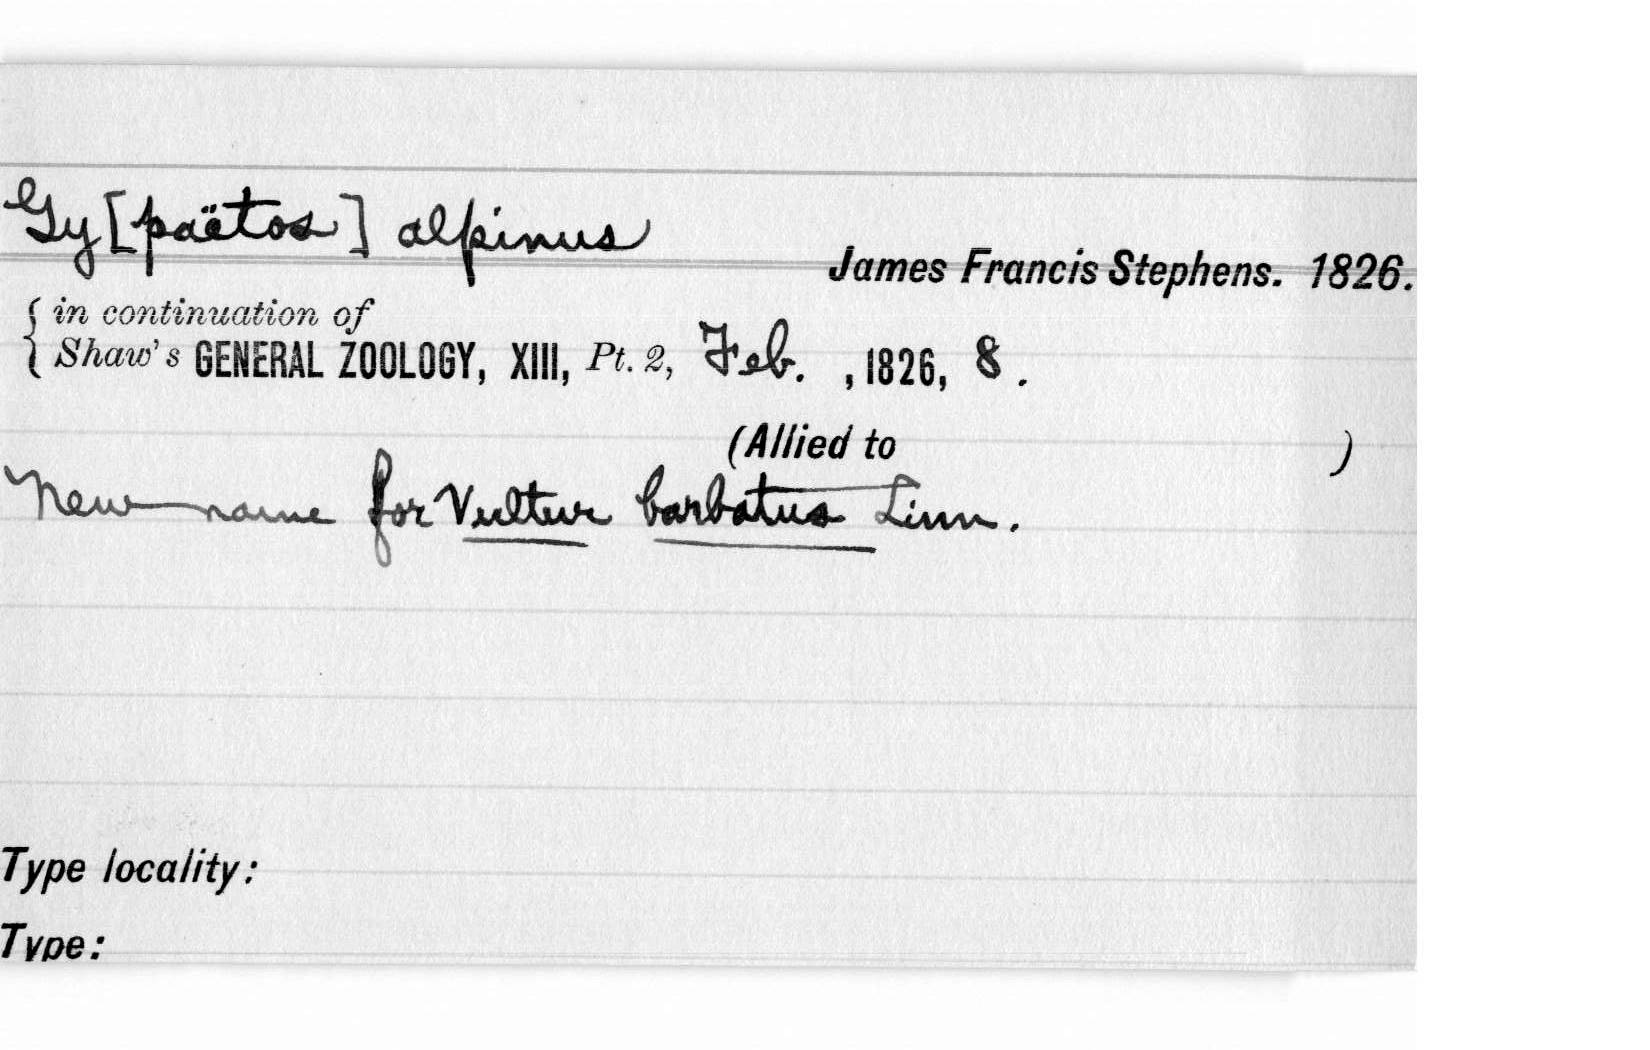 Gy[paëtos] alpinus
James Francis Stephens. 1826.
{ in continuation of
Shaw's GENERAL ZOOLOGY, XIII, Pt. 2, Feb. , 1826, 8 .
(Allied to )
New name for Vultur barbatus Linn.
Type locality:
Type: